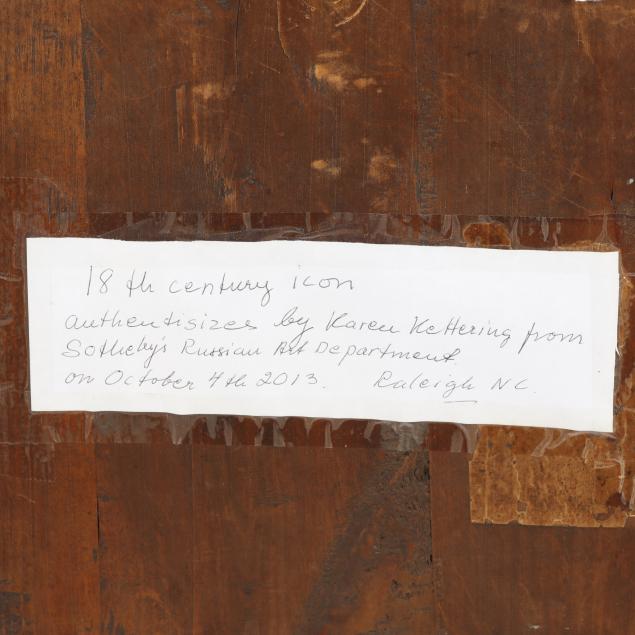 18 th century icon
authentisizes by Karen Kettering from
Sotheby's Russian Art Department.
on October 4th 2013. Raleigh NC.